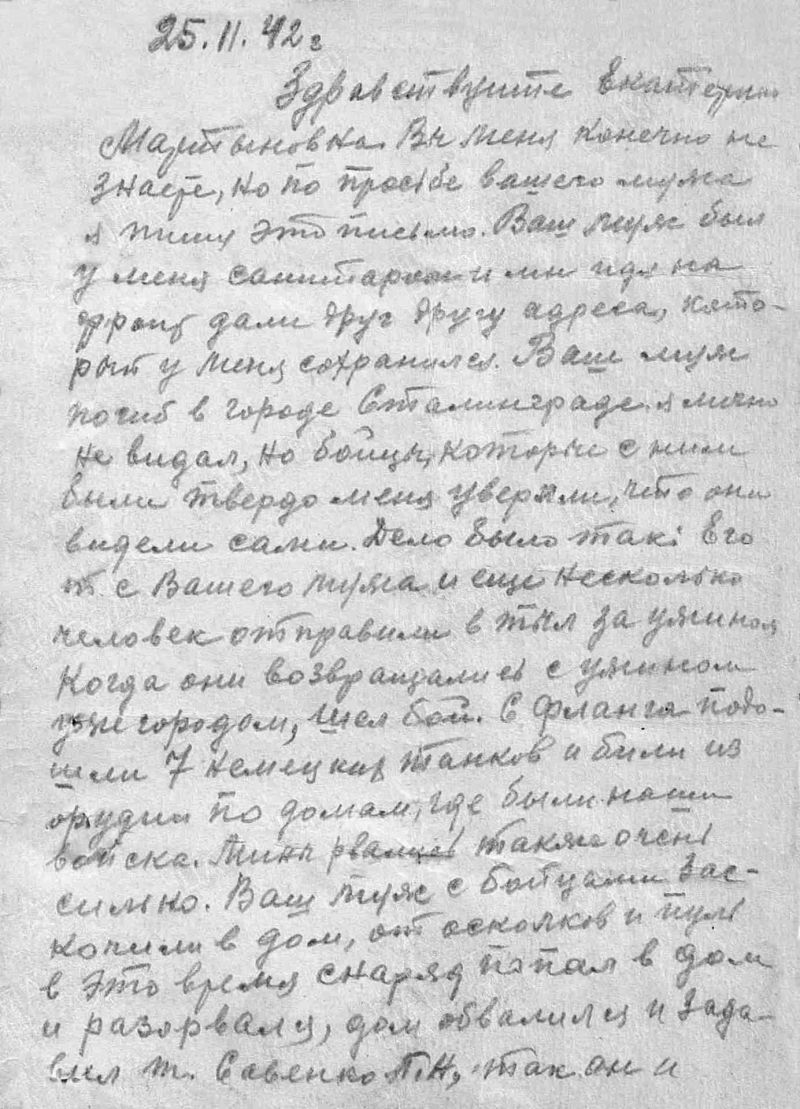 25.11.42 г
Здравствуите Екатерина
Мартыновна. Вы меня конечно не
знаете, но по просьбе вашего мужа
я пишу это письмо. Ваш муж был
у меня санитаром и мы идя на
фронт дали друг другу адреса, кото-
рый у меня сохранился. Ваш муж
погиб в городе Сталинграде я лично
не видал, но бойцы, которые с ним
были твердо меня уверяли, что они
видели сами. Дело было так: Его
т. е Вашего мужа и еще несколько
человек отправили в тыл за ужином
Когда они возвращались с ужином
городом, шел бой. С фланга подо-
шли 7 немецких танков и били из
орудии по домам, где были наши
войска. Мины рвались также очень
сильно. Ваш муж с бойцами зас-
копили в дом, от осколков и пуль
в это время снаряд попал в дом
и разорвался, дом обвалился и зада-
вил т. Савенко П.Н, так он и